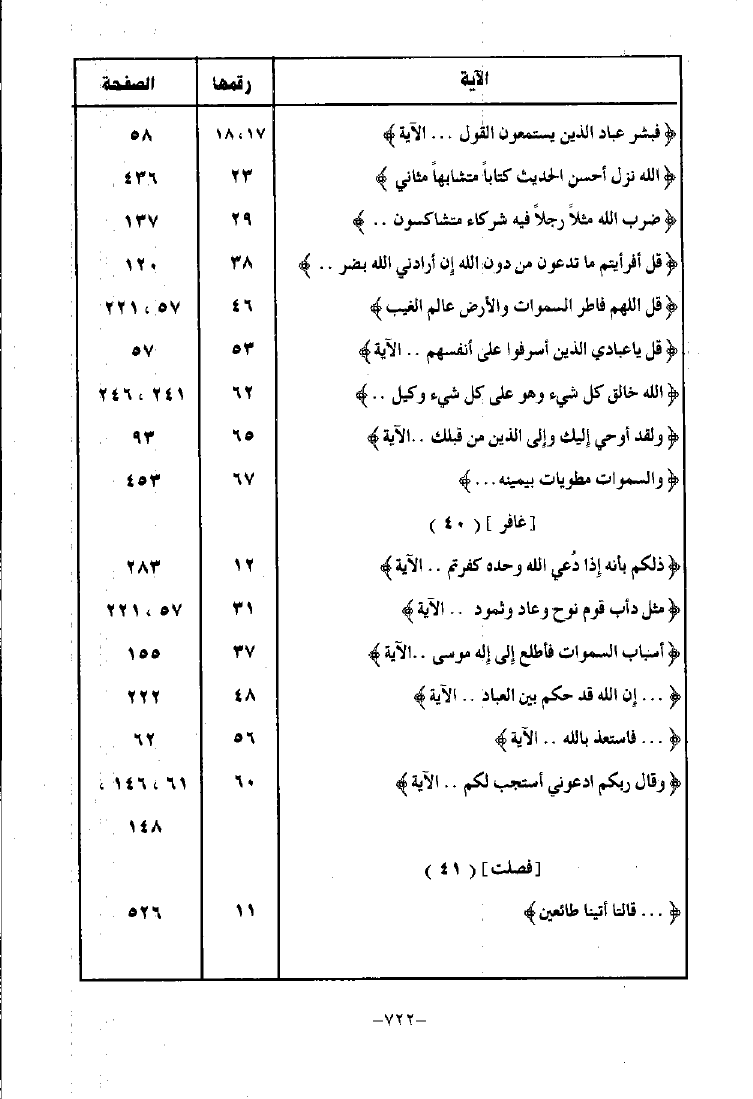 الآية رقمها الصفحة
﴿ فبشر عباد الذين يستمعون القول ... الآية ﴾ ١٧، ١٨ ٥٨
﴿ الله نزل أحسن الحديث كتاباً متشابهاً مثاني ﴾ ٢٣ ٤٣٦
﴿ ضرب الله مثلاً رجلاً فيه شركاء متشاكسون .. ﴾ ٢٩ ١٣٧
﴿ قل أفرأيتم ما تدعون من دون الله إن أرادني الله بضر .. ﴾ ٣٨ ١٢٠
﴿ قل اللهم فاطر السموات والأرض عالم الغيب ﴾ ٤٦ ٥٧، ٢٢١
﴿ قل ياعبادي الذين أسرفوا على أنفسهم .. الآية ﴾ ٥٣ ٥٧
﴿ الله خالق كل شيء وهو على كل شيء وكيل .. ﴾ ٦٢ ٢٤١، ٢٤٦
﴿ ولقد أوحي إليك وإلى الذين من قبلك ..الآية ﴾ ٦٥ ٩٣
﴿ والسموات مطويات بيمينه... ﴾ ٦٧ ٤٥٣
[غافر ] ( ٤٠ )
﴿ ذلكم بأنه إذا دُعي الله وحده كفرتم .. الآية ﴾ ١٢ ٢٨٣
﴿ مثل دأب قوم نوح وعاد وثمود .. الآية ﴾ ٣١ ٥٧، ٢٢١
﴿ أسباب السموات فأطلع إلى إله موسى ..الآية ﴾ ٣٧ ١٥٥
﴿ ... إن الله قد حكم بين العباد .. الآية ﴾ ٤٨ ٢٢٢
﴿ ... فاستعذ بالله .. الآية ﴾ ٥٦ ٦٢
﴿ وقال ربكم ادعوني أستجب لكم .. الآية ﴾ ٦٠ ٦١، ١٤٦،
١٤٨
[فصلت] ( ٤١ )
﴿ ... قالتا أتينا طائعين ﴾ ١١ ٥٢٦
–٧٢٢–